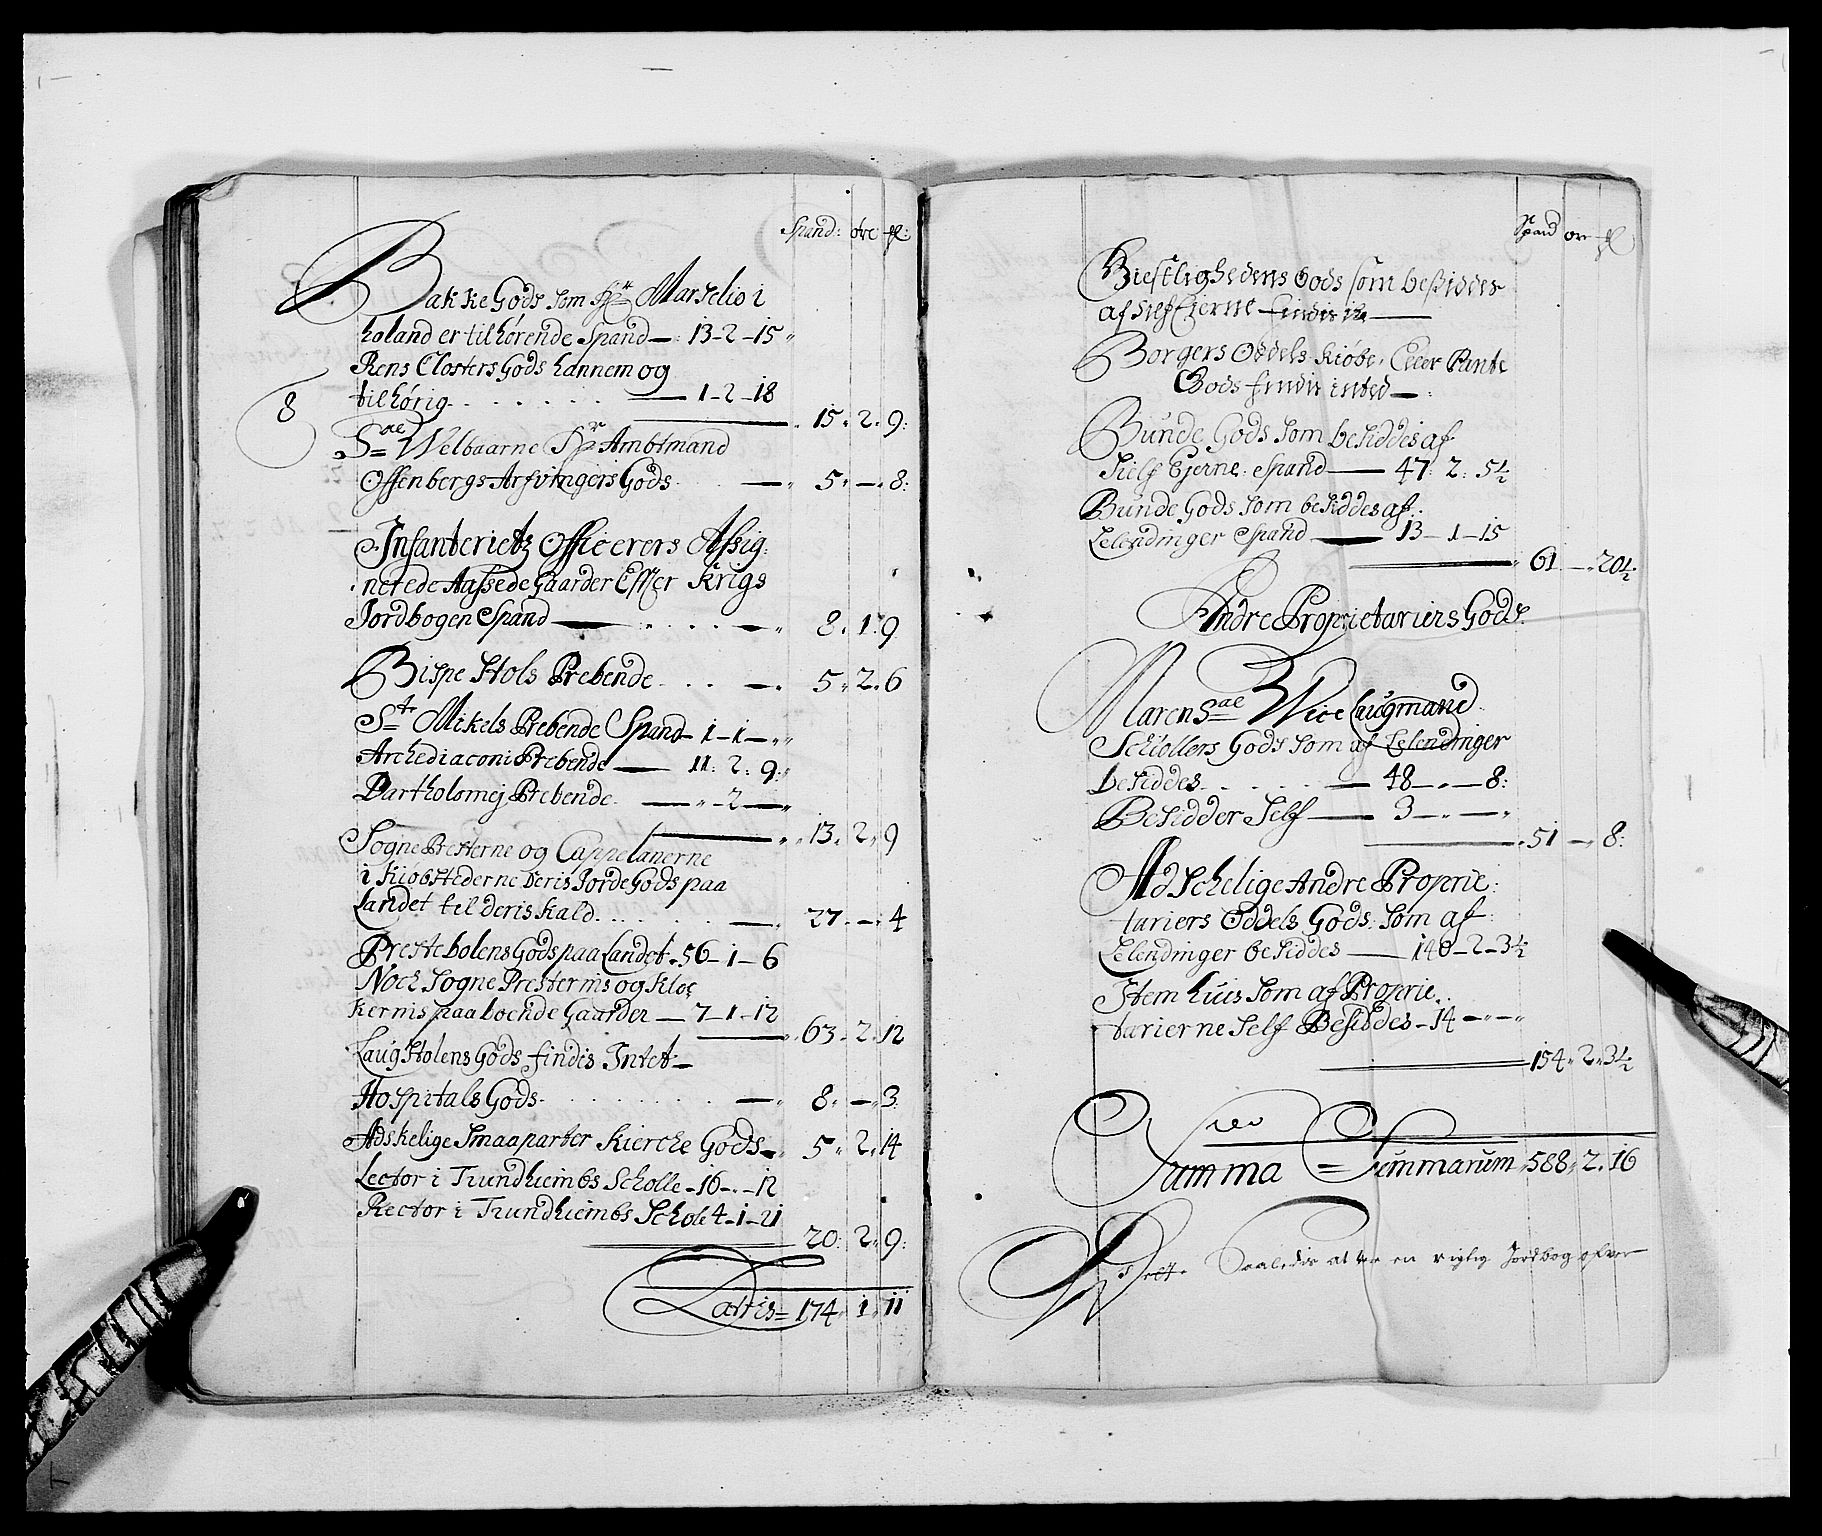 Spand: øre ſl:
Bakke Gods som Hr Marselio i
holand er tilhørende Spand — 13 - 2 - 15
Rens Closters Gods hannem og
tilhörig . . . . . — 1 - 2 - 18
15 . 2 . 9:
8
Sae Welbaarne Hr Ambtmand
Offenbergs Arfvingers Gods — 5 . — . 8:
Infanteriets Officerers Assig:
nerede Aassede Gaarder Effter Krigs
Jordbogen Spand — . . . . — 8 . 1 . 9
Bispe Stols Prebende . . . — . 5 . 2 . 6
St Mikels Prebende Spand - 1 - 1 —
Archediaconi Prebende — 11 : 2 : 9
Bartholomej Prebende . — . - 2 —
13 . 2 . 9
Sogne Presterne og Cappelanerne
i Kiøbstederne Deris Jorde Gods paa
Landet til deris Kald . . . . — 27 . — . 4
Prestebolens Gods paa Landet . 56 - 1 - 6
Noch Sogne Presternis og Kloc
kernis paa boende Gaarder — 7 - 1 - 12
63 . 2 . 12
Laug Stolens Gods findis Intet —
Hospitals Gods . . . . . — 8 . — . 3
Adskelige Smaaparter Kierche Gods — 5 . 2 . 14
Lector i Trundhiembs Scholle - 16 - . - 12
Rector i Trundhiembs Schole 4 - 1 - 21
20 : 2 . 9:
Lattis = 174 . 1 . 11
Spand ore ſl
Giestlighedens Gods som besiddes
af Self Ejerne findis
Borgers Oddels Kiøbe, Eller Pante
Gods findis inted — :
Bunde Gods Som besiddes af
Self Ejerne Spand — 47 : 2 : 5½
Bunde Gods som besiddes af
Lelendinger Spand — 13 - 1 - 15
61 . — . 20½
Andre Proprietariers Gods
Maren Sae Wice Laugmand
Schiollers Gods som af Lelendinger
besiddes . . . . . — 48 — . — 8:
Besidder Self — 3 — . — .
51 — 8:
Adschelige Andre Proprie:
tariers Oddels Gods som af
Lelendinger besiddes — 140 - 2 - 3½
Item huis som af Proprie
tarierne Self Besiddes - 14 - . - .
154 . 2 . 3½
Summa Summarum . 588 . 2 . 16
Saaledis at were en rigtig Jordbog ofver